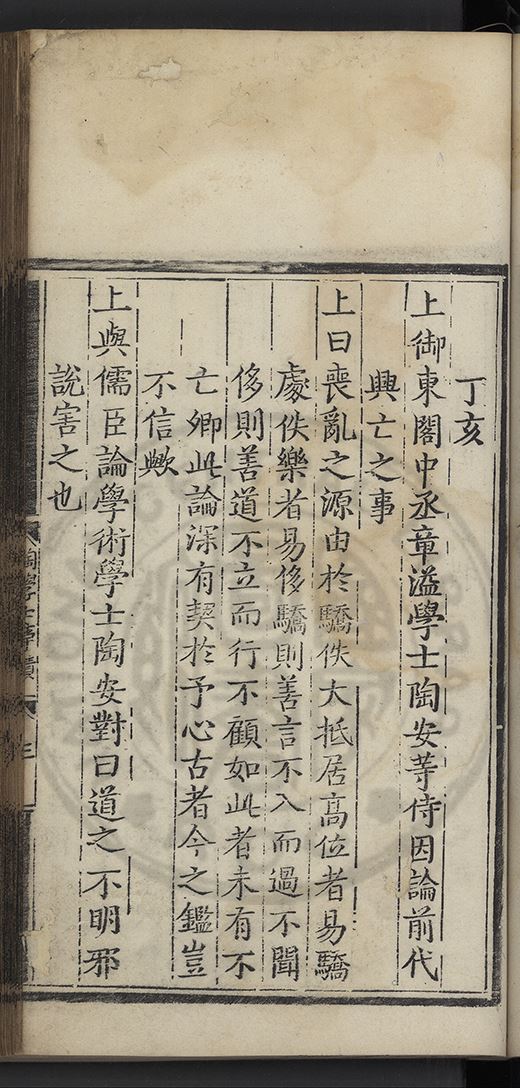 丁亥
上御東閣中丞章溢學士陶安等侍因論前代
興亡之事
上曰喪亂之源由於驕佚大抵居高位者易驕
處佚樂者易侈驕則善言不入而過不聞
侈則善道不立而行不顧如此者未有不
亡卿此論深有契於予心古者今之鑑豈
不信歟
上與儒臣論學術學士陶安對曰道之不明邪
說害之也
陶學士事蹟
三